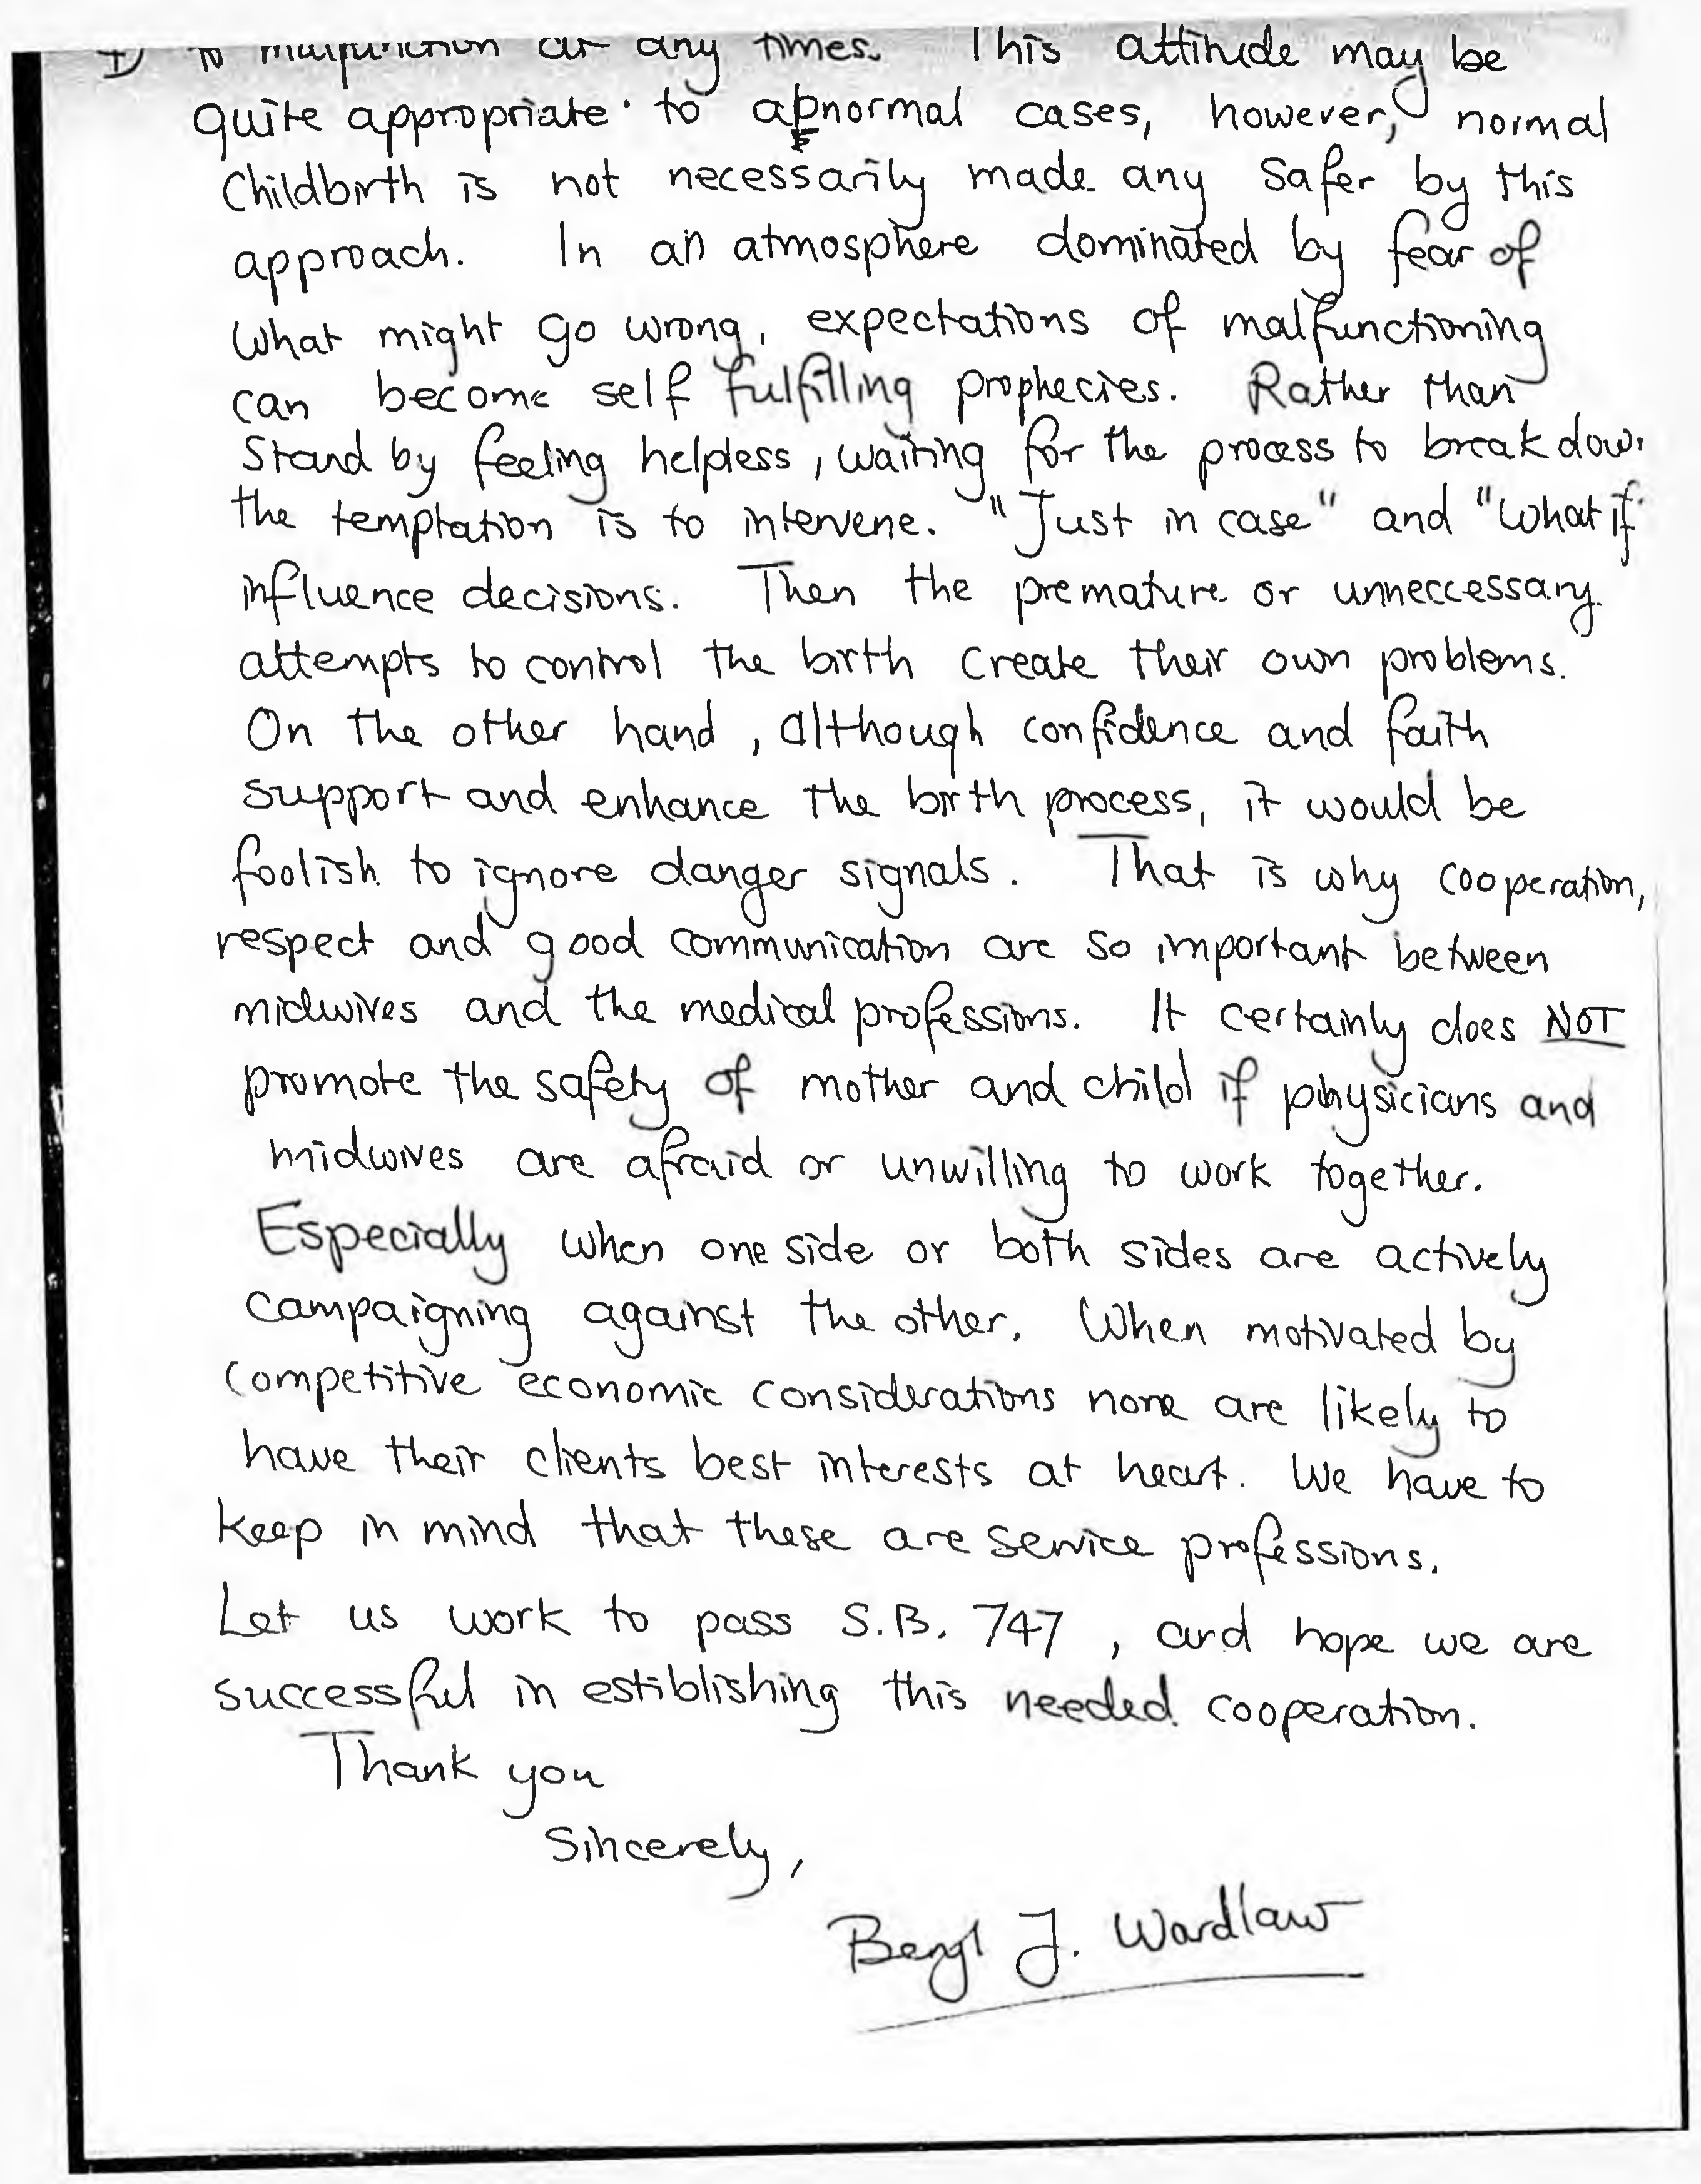 to malfunction at any times. This attitude may be
quite appropriate to abnormal cases, however, normal
Childbirth is not necessarily made any safer by this
approach. In an atmosphere dominated by fear of
What might go wrong, expectations of malfunctioning
can become self fulfilling prophecies. Rather than
Stand by feeling helpless, waiting for the process to break dow
the temptation is to intervene. "Just in case" and "What if
influence decisions. Then the premature or unneccessary
attempts to control the birth create their own problems.
On the other hand, although confidence and faith
support and enhance the birth process, it would be
foolish to ignore danger signals. That is why cooperation,
respect and good communication are so important between
midwives and the medical professions. It certainly does NOT
promote the safety of mother and child if physicians and
midwives are afraid or unwilling to work together.
Especially when one side or both sides are actively
campaigning against the other. When motivated by
competitive economic considerations none are likely to
have their clients best interests at heart. We have to
keep in mind that these are service professions.
Let us work to pass S.B. 747, and hope we are
successful in estiblishing this needed cooperation.
Thank you
Sincerely,
Beryl J. Wardlaw